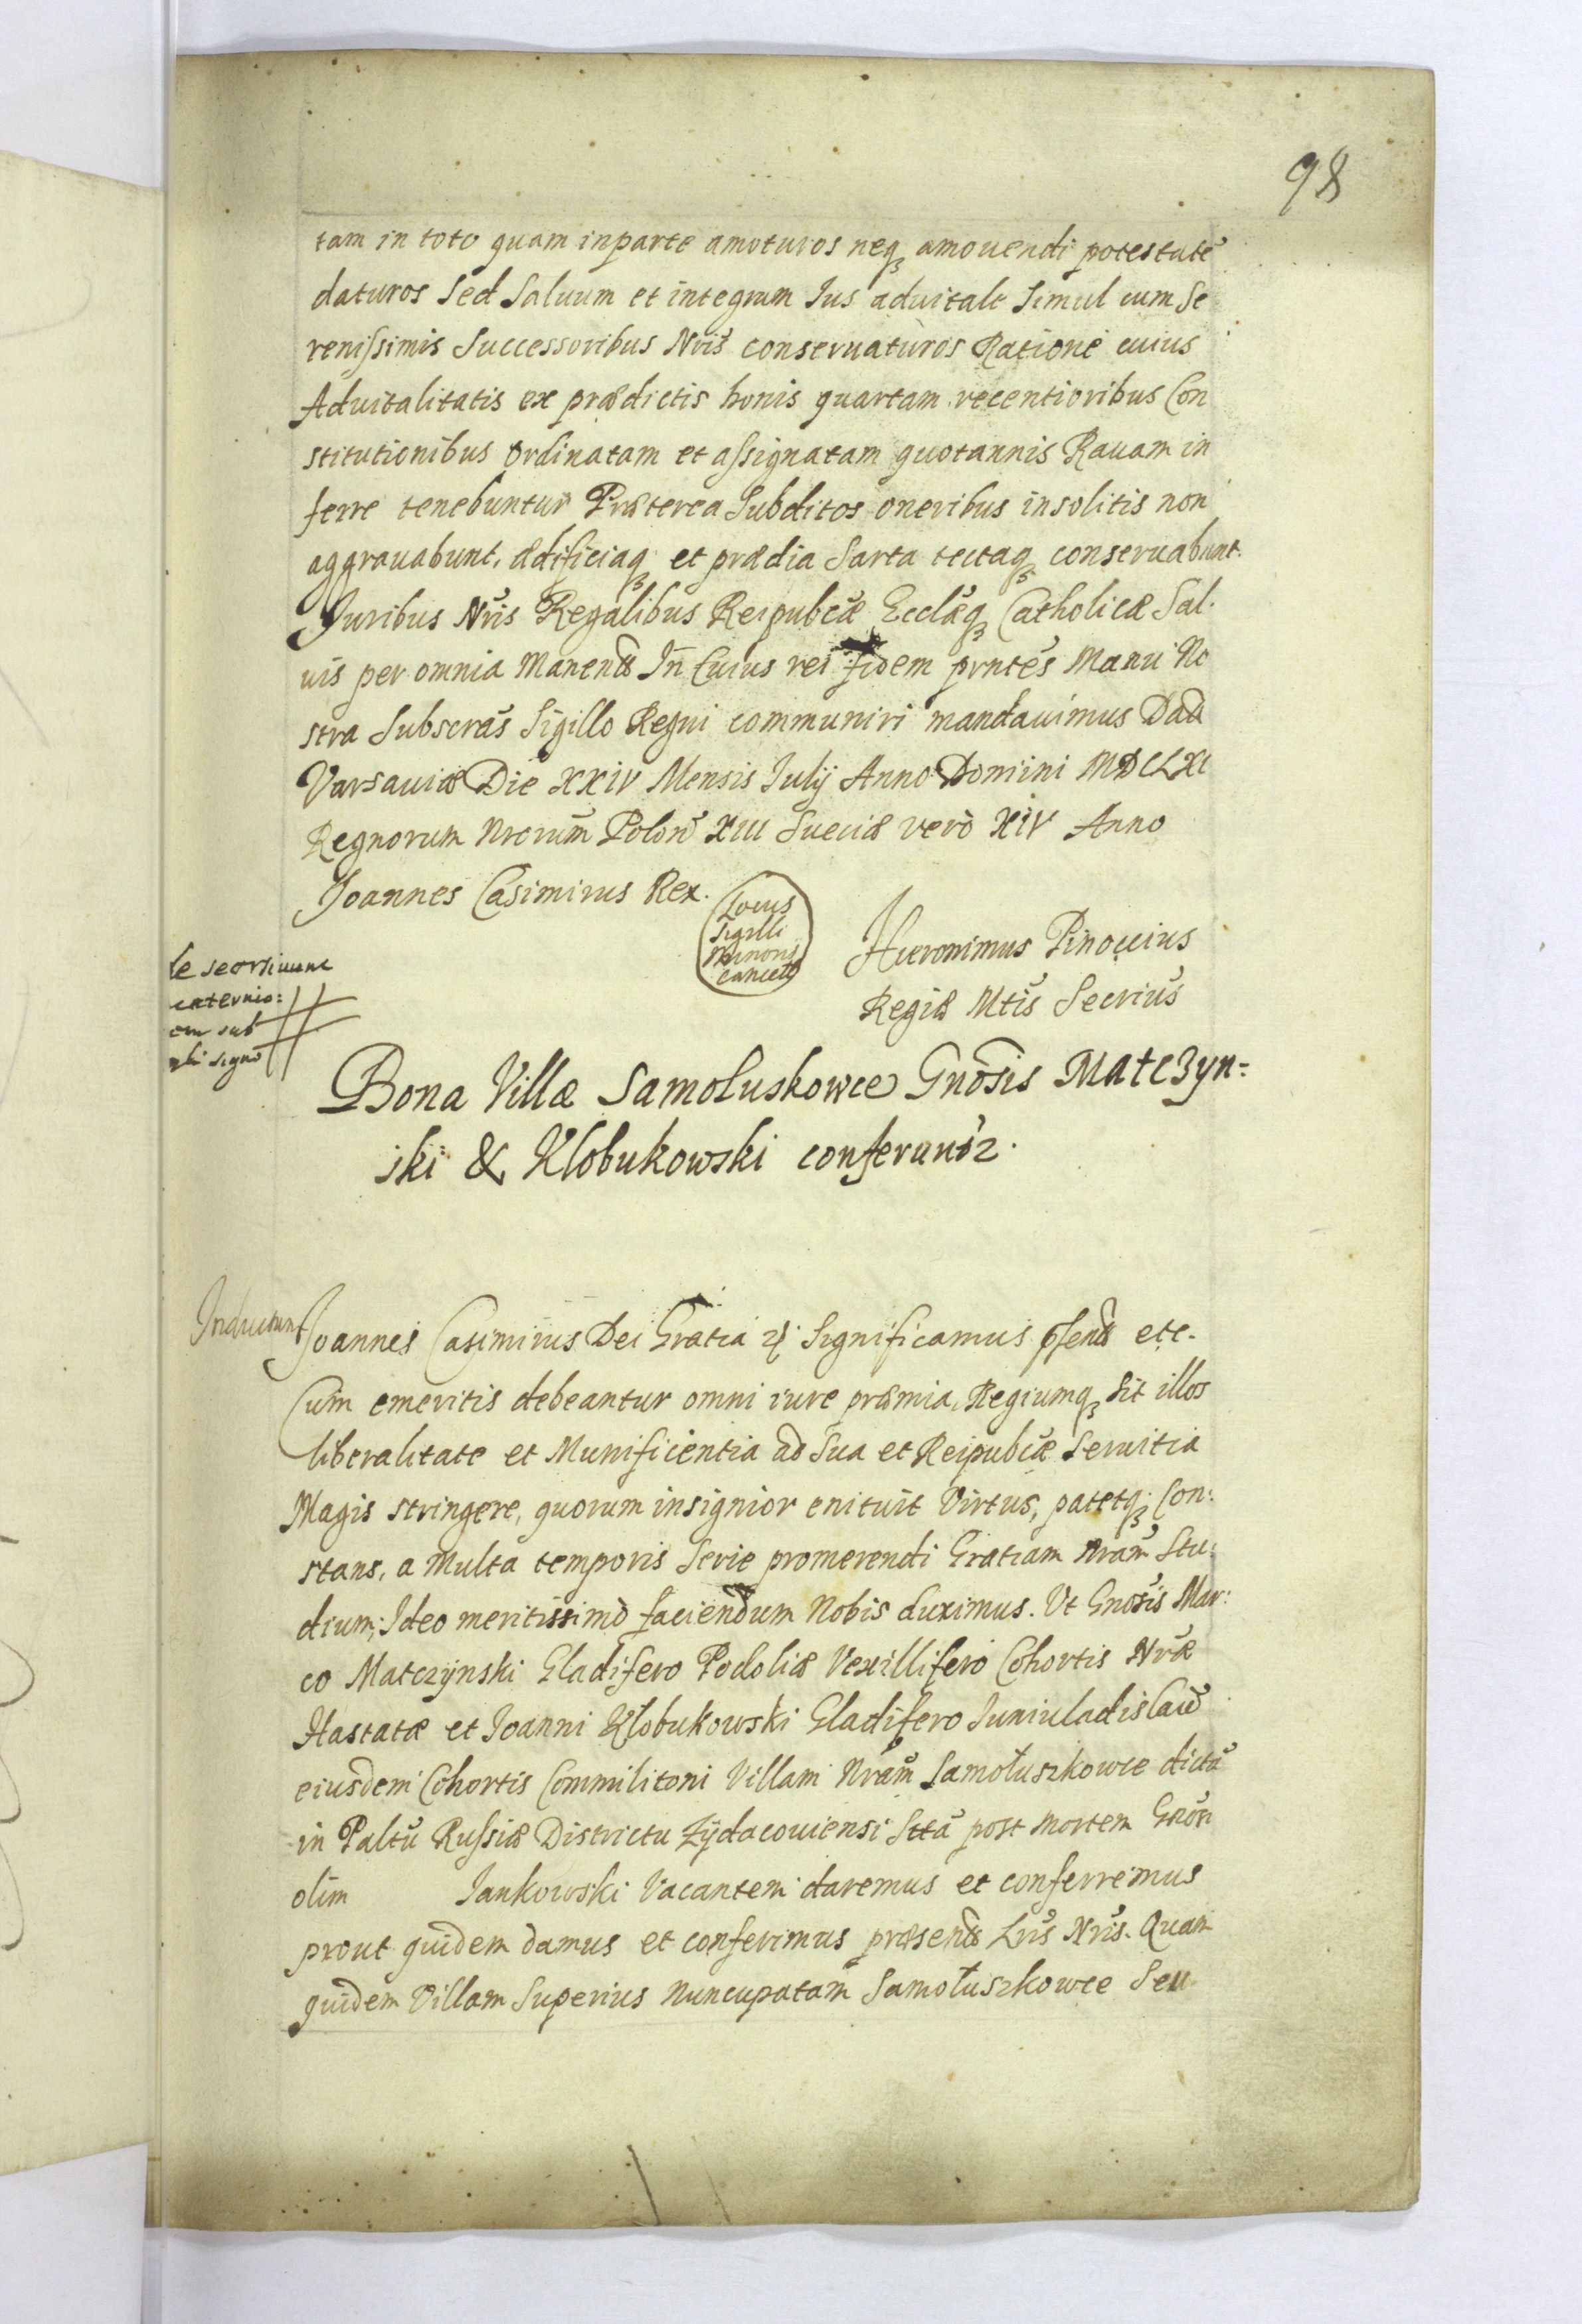 98
tam in toto quam in parte amoturos neqꝫ amouendi potestatē
daturos Sed Saluum et integrum Ius aduitale Simul cum Se
renissimis Successoribus Nris conseruaturos Ratione cuius
Aduitalitatis ex prædictis bonis quartam recentioribus Con
stitutionibus ordinatam et assignatam quotannis Rauam in
ferre tenebuntur Præterea Subditos oneribus insolitis non
aggrauabunt, ædificiaqꝫ et prædia Sarta tectaqꝫ conseruabunt.
Juribus Nris Regalibus Reipubcæ Ecclæqꝫ Catholicæ Sal.
uis per omnia Manend In Cuius rei fidem prntes Manu No
stra Subscras Sigillo Regni communiri mandauimus Dad
Varsauiæ Die XXIV Mensis Iulÿ Anno Domini MDCLXI
Regnorum Nrorum Polon XIII Sueciæ vero XIV Anno
Joannes Casimirus Rex.
Locus
Sigilli
Minoris
Cancell
Hieronimus Pinoccius
Regiæ Mtis Secrius
sub
signo
Bona Villæ Samoluskowce Gnosis Matczyn=
ski & Klobukowski conferuntr.
Inductum
Joannes Casimirus Dei Gratia Significamus psend etc.
Cum emeritis debeantur omni iure præmia, Regiumqꝫ sit illos
liberalitate et Munificentia ad Sua et Reipubcæ Seruitia
Magis stringere, quorum insignior enituit Virtus, patetqꝫ Con:
stans, a Multa temporis Serie promerendi Gratiam Nram Stu:
dium; Ideo meritissimo faciendum Nobis duximus. Vt Gnosis Mar:
co Matczÿnski Gladifero Podoliæ Vexillifero Cohortis Nræ
Hastatæ et Joanni Kłobukowski Gladifero Iuniuladislau
eiusdem Cohortis Commilitoni Villam Nram Samołuszkowce dictā
in Paltu Russiæ Districtu Zÿdacouiensi Sttā post mortem Gnosi
olim Jankowski Vacantem daremus et conferremus
prout quidem damus et conferimus præsend Lris Nris. Quam
quidem Villam Superius Nuncupatam Samołuszkowce Seu